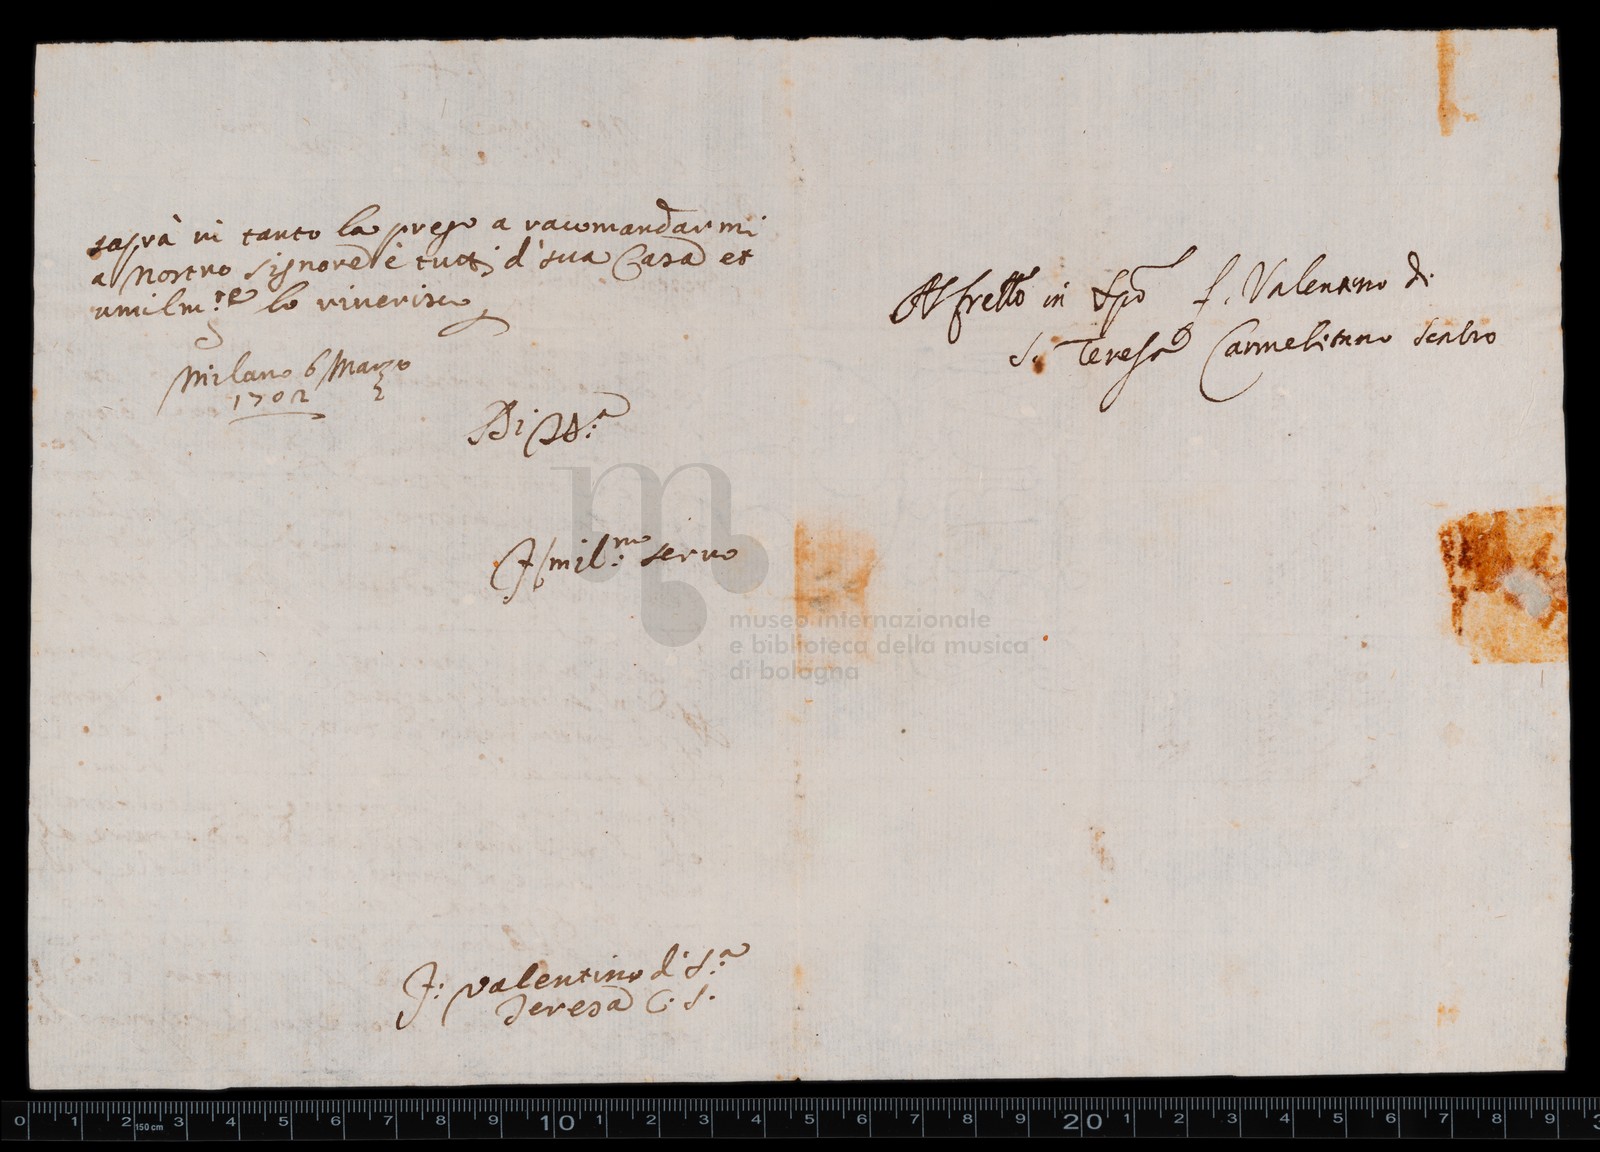 saprà in tanto la prego a racomandarmi
a Nostro Signore è tutti d'sua Casa et
umilm.te lo riverisco
Milano 6 Marzo
1702
Di V.S.a
Humil.mo servo
F: Valentino di S.a
Teresa C. S.
Al fretto in Spo f. Valentino di
S. Teresa Carmelitano Scalzo
museo internazionale
e biblioteca della musica
di bologna
0 1 2 3 4 5 6 7 8 9 10 1 2 3 4 5 6 7 8 9 20 1 2 3 4 5 6 7 8 9 3
150 cm